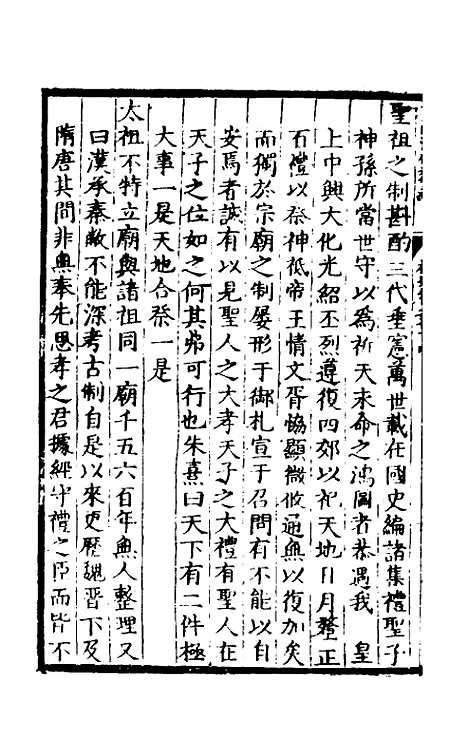 聖祖之制斟酌三代垂憲萬世載在國史編諸集禮聖子
神孫所當世守以為祈天永命之鴻圖者恭遇我　皇
上中興大化光紹丕烈遵復四郊以祀天地日月釐正
百禮以祭神祇帝王情文胥恊顯微攸通無以復加矣
而獨於宗廟之制屢形于御札宣于召問有不能以自
安焉者誠有以見聖人之大孝天子之大禮有聖人在
天子之位如之何其弗可行也朱熹曰天下有二件極
大事一是天地合祭一是
太祖不特立廟與諸祖同一廟千五六百年無人整理又
曰漢承秦敝不能深考古制自是以來更歷魏晋下及
隋唐其間非無奉先思孝之君據經守禮之臣而皆不